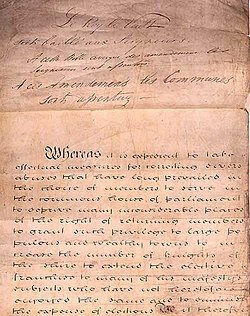 Soit Baillé aux Seigneurs
A ceste Bille avecque des amendemens les
Seigneurs sont assentuz
A ces Amendemens les Communes
sont assentuz
Whereas it is expedient to take
effectual measures for correcting divers
abuses that have long prevailed in
the choice of members to serve in
the commons house of parliament
to deprive many inconsiderable places
of the right of returning members
to grant such privilege to large po
pulous and wealthy towns to in
crease the number of knights of
the shire to extend the elective
franchise to many of his majesty's
subjects who have not heretofore
enjoyed the same and to diminish
the expense of elections Be it therefore